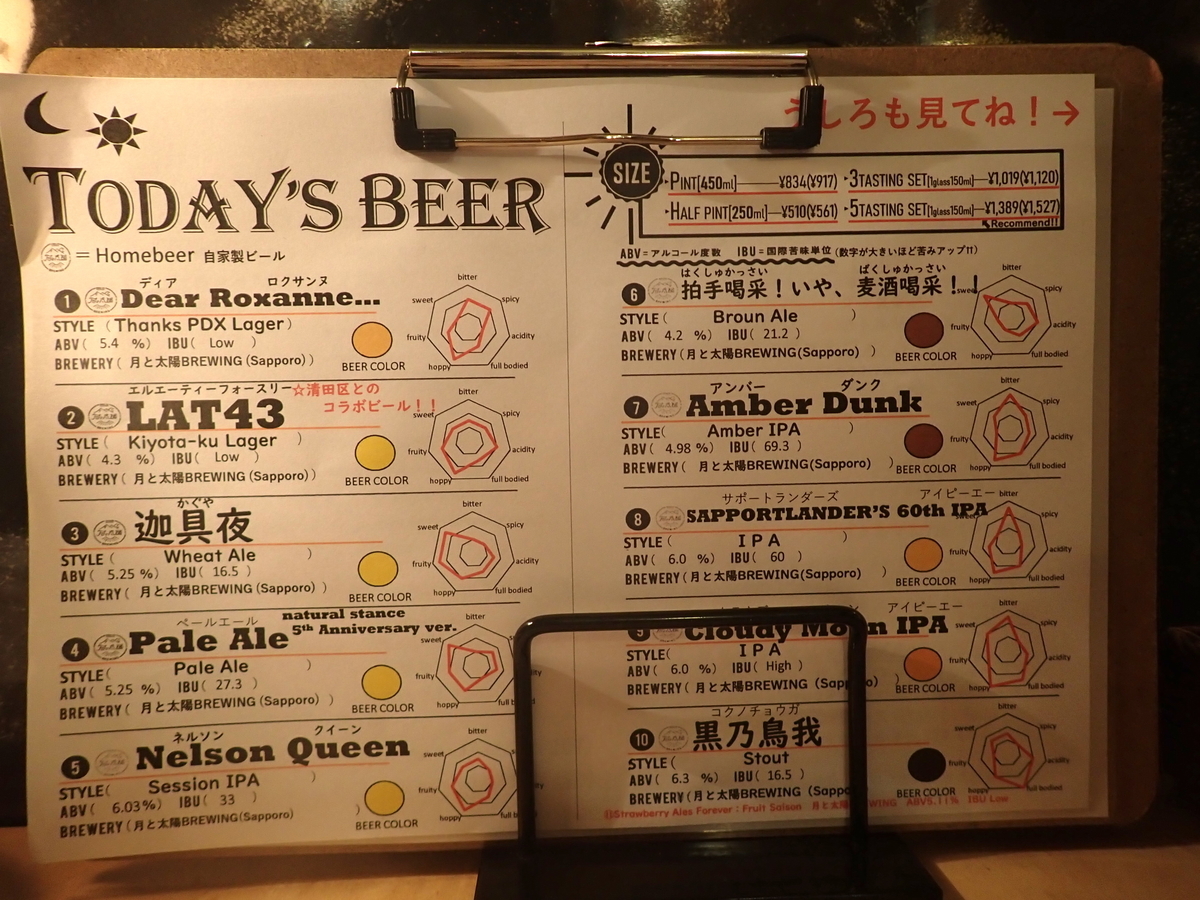 うしろも見てね！→
TODAY'S BEER
= Homebeer 自家製ビール
SIZE
PINT[450ml]—¥834(¥917)
HALF PINT[250ml]—¥510(¥561)
3TASTING SET[1glass150ml]—¥1,019(¥1,120)
5TASTING SET[1glass150ml]—¥1,389(¥1,527)
Recommend!!
ABV=アルコール度数 IBU=国際苦味単位(数字が大きいほど苦みアップ!!)
ディア ロクサンヌ
1 Dear Roxanne...
STYLE (Thanks PDX Lager)
ABV( 5.4 %) IBU( Low )
BREWERY(月と太陽BREWING (Sapporo) )
BEER COLOR
bitter
sweet
spicy
fruity
acidity
hoppy
full bodied
エルエーティーフォースリー
☆清田区との
コラボビール！！
2 LAT43
STYLE( Kiyota-ku Lager )
ABV( 4.3 %) IBU( Low )
BREWERY( 月と太陽BREWING (Sapporo) )
BEER COLOR
bitter
sweet
spicy
fruity
acidity
hoppy
full bodied
かぐや
3 迦具夜
STYLE( Wheat Ale )
ABV( 5.25 %) IBU( 16.5 )
BREWERY( 月と太陽BREWING(Sapporo) )
BEER COLOR
bitter
sweet
spicy
fruity
acidity
hoppy
full bodied
ペールエール
natural stance
5th Anniversary ver.
4 Pale Ale
STYLE( Pale Ale )
ABV( 5.25 %) IBU( 27.3 )
BREWERY( 月と太陽BREWING(Sapporo) )
BEER COLOR
bitter
sweet
fruity
hoppy
ネルソン クイーン
5 Nelson Queen
STYLE( Session IPA )
ABV( 6.03%) IBU( 33 )
BREWERY(月と太陽BREWING(Sapporo) )
BEER COLOR
bitter
sweet
fruity
hoppy
はくしゅかっさい ばくしゅかっさい
6 拍手喝采！いや、麦酒喝采！！
STYLE( Broun Ale )
ABV( 4.2 %) IBU( 21.2 )
BREWERY(月と太陽BREWING(Sapporo) )
BEER COLOR
bitter
spicy
fruity
acidity
hoppy
full bodied
アンバー ダンク
7 Amber Dunk
STYLE( Amber IPA )
ABV( 4.98 %) IBU( 69.3 )
BREWERY( 月と太陽BREWING(Sapporo) )
BEER COLOR
bitter
sweet
spicy
fruity
acidity
hoppy
full bodied
サポートランダーズ アイピーエー
8 SAPPORTLANDER'S 60th IPA
STYLE( IPA )
ABV( 6.0 %) IBU( 60 )
BREWERY(月と太陽BREWING(Sapporo) )
BEER COLOR
bitter
sweet
spicy
fruity
acidity
hoppy
full bodied
アイピーエー
9 Cloudy Moon IPA
STYLE( IPA )
ABV( 6.0 %) IBU( High )
BREWERY( 月と太陽BREWING (Sapporo) )
BEER COLOR
bitter
sweet
spicy
fruity
acidity
hoppy
full bodied
コクノチョウガ
10 黒乃鳥我
STYLE( Stout )
ABV( 6.3 %) IBU( 16.5 )
BREWERY(月と太陽BREWING (Sappo
BEER COLOR
bitter
sweet
spicy
fruity
acidity
hoppy
full bodied
⑪Strawberry Ales Forever : Fruit Saison 月と太陽BREWING ABV5.11% IBU Low